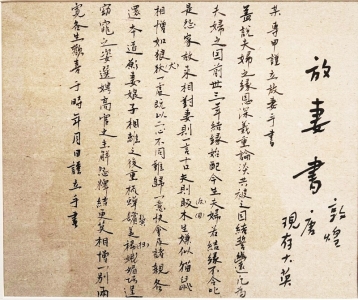 敦煌
現存大英
放妻書 唐
某專甲謹立放妻手書
蓋說夫婦之緣恩深義重論談共被之因結誓幽遠凡為
夫婦之因前世三年結緣始配今生夫婦若結緣不合比
是怨家故來相對妻則一言十口夫則販木生嫌似貓鼠
相憎如狼犬一處既以二心不同難歸一意快會及諸親各
還本道願妻娘子相離之後重梳蟬鬢美裙娥媚巧逞
窈窕之姿選娉高官之主解怨釋結更莫相憎一別兩
寬各生歡喜于時年月日謹立手書